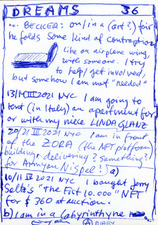 DREAMS 36
... BECKER: on/in a (art?) fair
he folds some kind of contraption
like an airplane wing,
with someone. I try
to help/get involved,
but somehow I am not "needed"
13/14 III 2021 NYC I am going to
rent (in Italy) an apartment for
or with my niece LINDA GLANZ
20/21 III 2021 NYC I am in front
of the ZORA (the NFT platform)
building, delivering? Something?
for Annuyen NiSpel?
10/11 IV 2021 NYC I bought Jerry
Saltz's "the Fist 10.000" NFT
for $ 360 at auction.
b) I am in a Labyrinthyne
DIARY